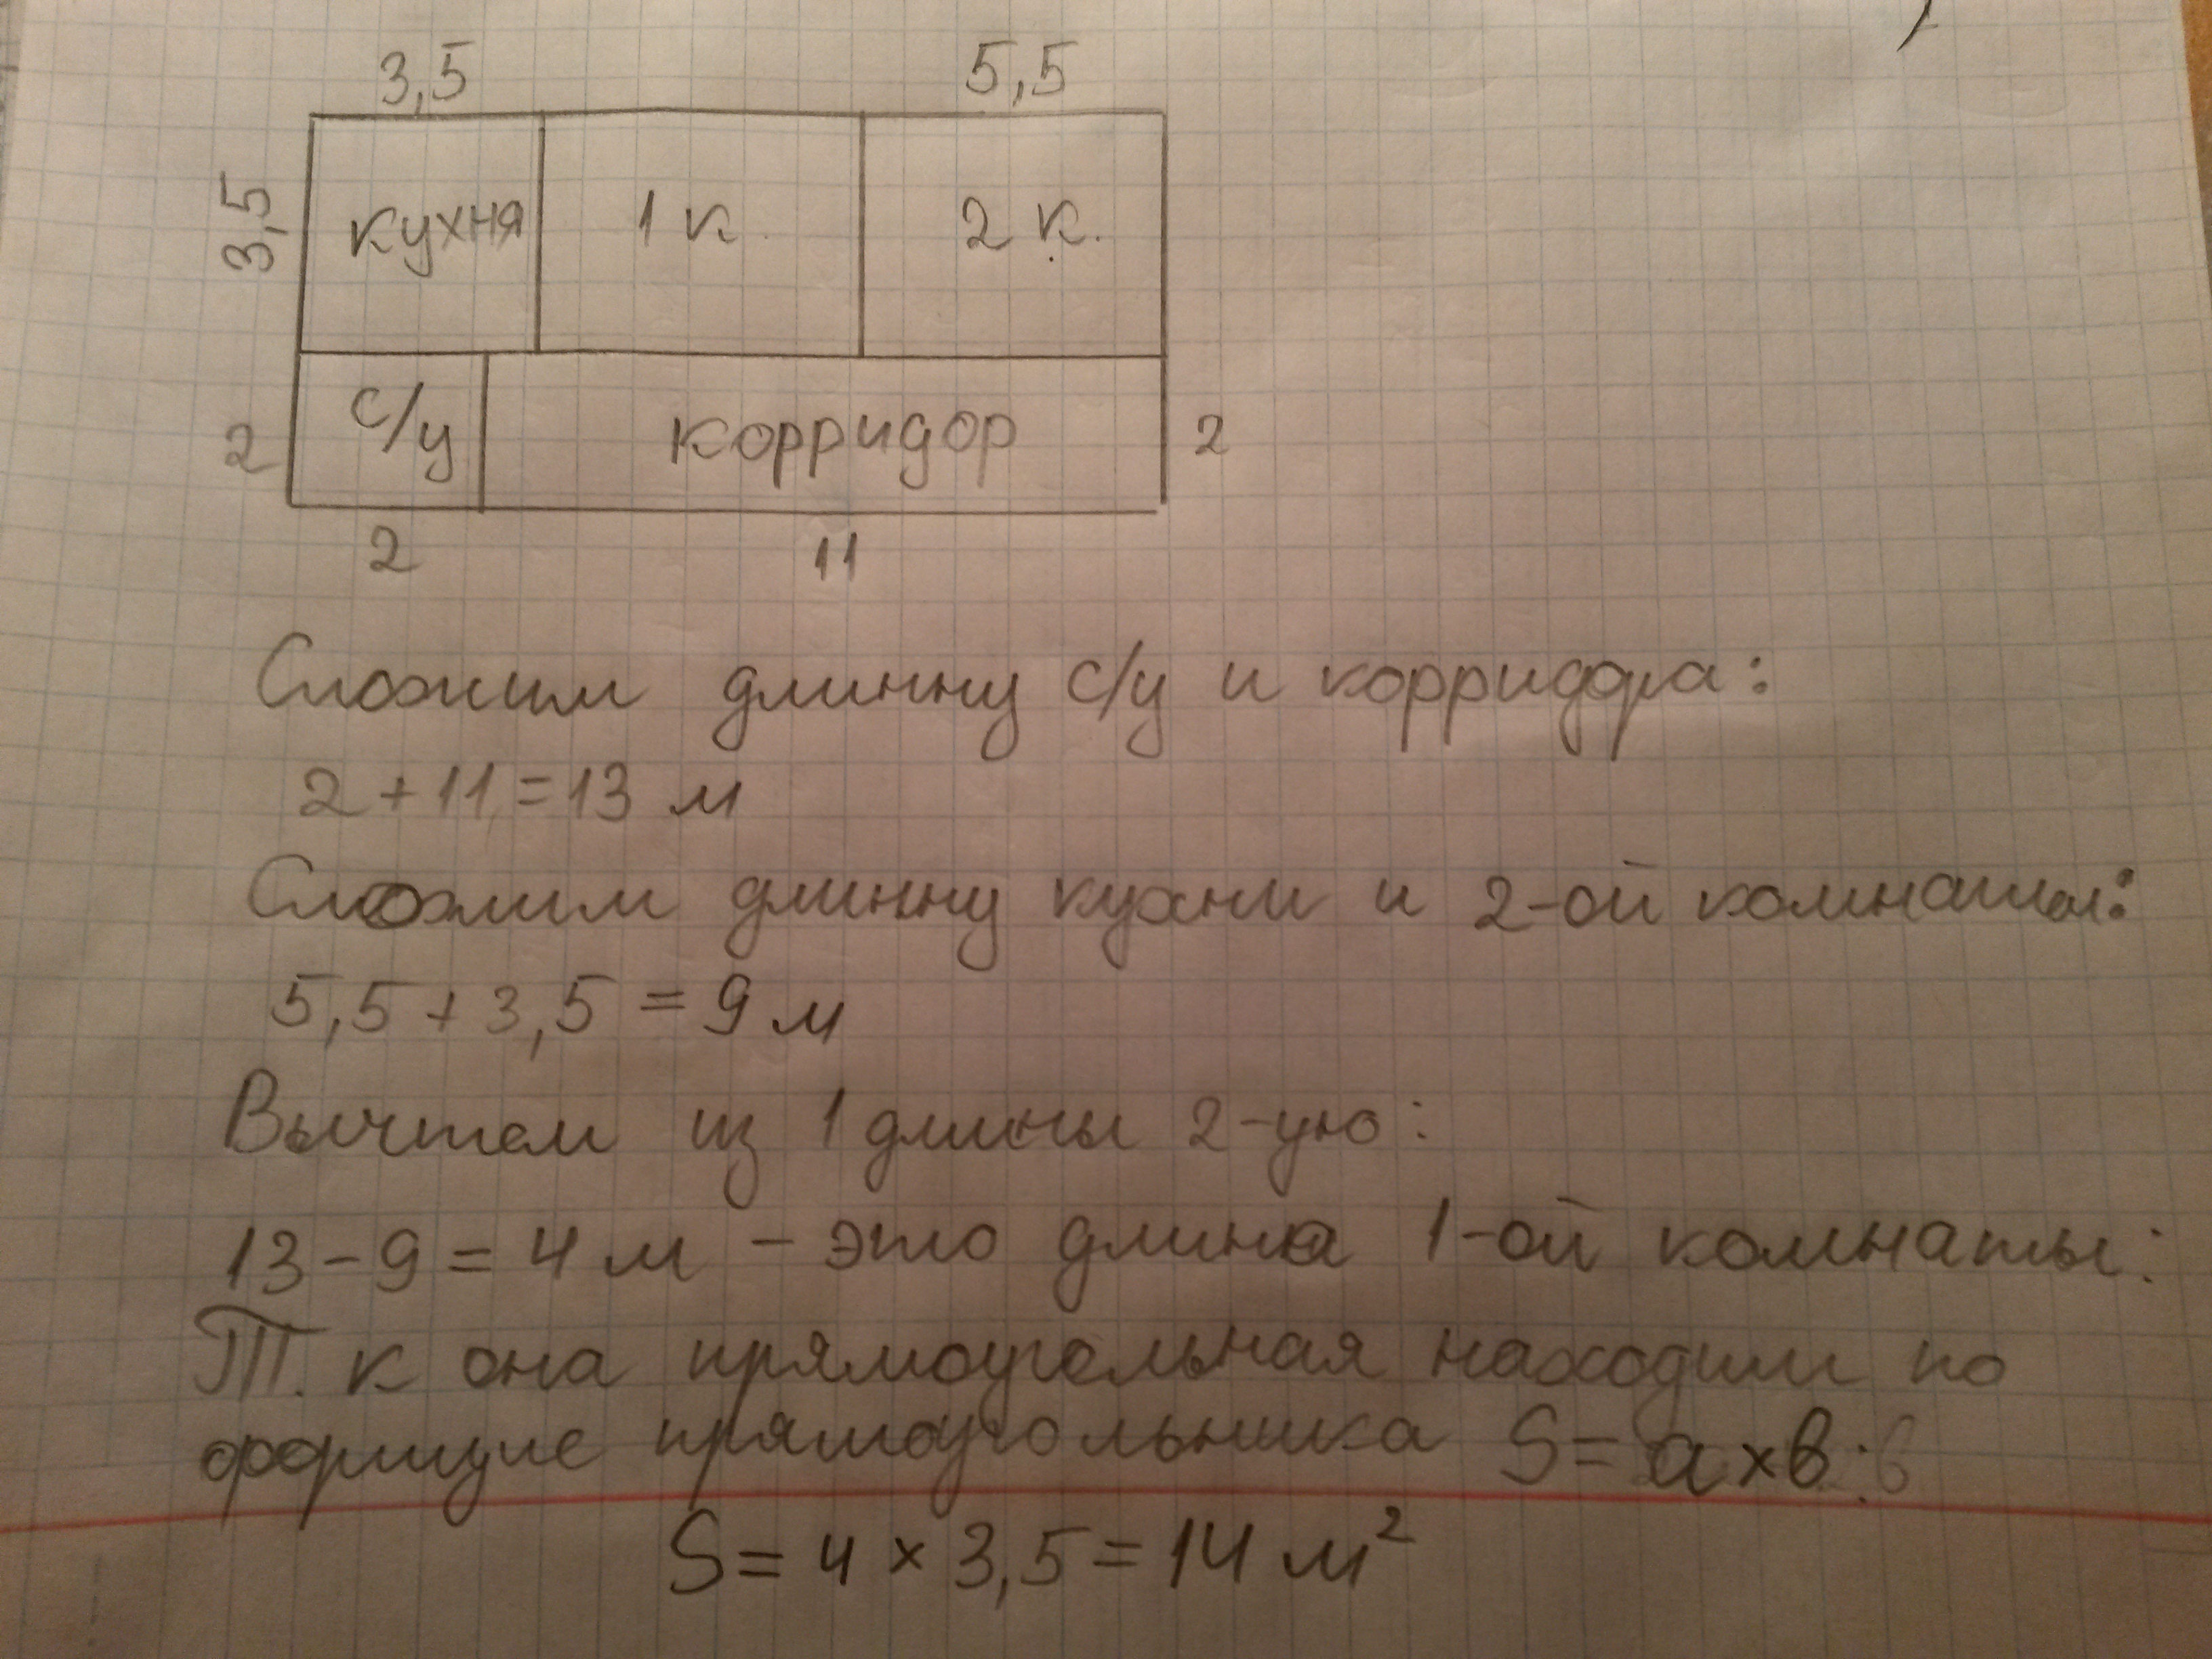 3,5 5,5
3,5 кухня 1 к. 2 к.
2 с/у корридор 2
2 11
Сложим длинну с/у и корридора:
2 + 11 = 13 м
Сложим длинну кухни и 2-ой комнаты:
5,5 + 3,5 = 9 м
Вычтем из 1 длины 2-ую:
13 - 9 = 4 м - это длина 1-ой комнаты:
Т. к она прямоугольная находим по
формуле прямоугольника S = a × в :
S = 4 × 3,5 = 14 м²